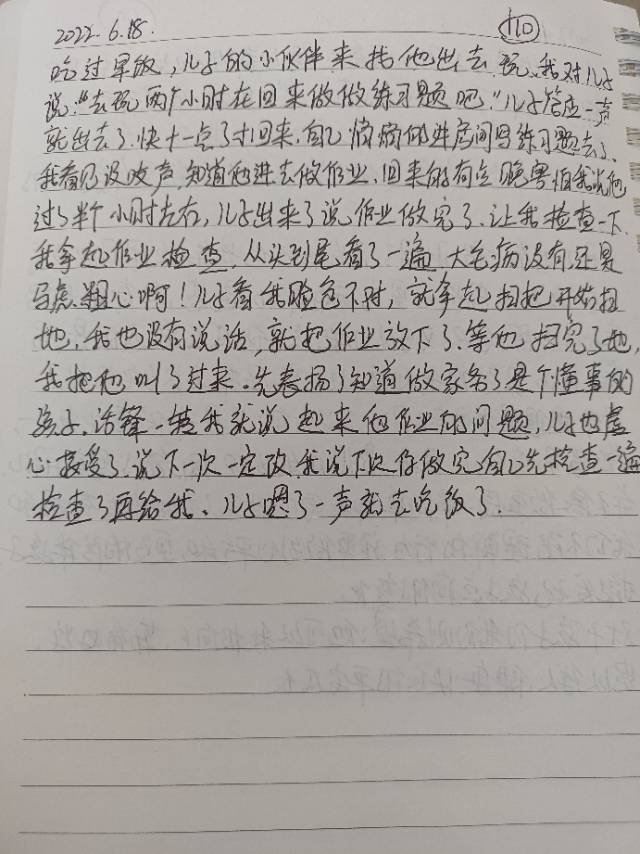 2022.6.18.
110
吃过早饭,儿子的小伙伴来找他出去玩,我对儿子
说:“去玩两个小时在回来做做练习题吧”儿子答应一声
就出去了.快十一点了才回来.自己悄悄的进房间写练习题去了.
我看见没吱声,知道他进去做作业.回来的有点晚害怕我说他
过了半个小时左右,儿子出来了说作业做完了.让我检查一下.
我拿起作业检查,从头到尾看了一遍 大毛病没有还是
马虎.粗心啊!儿子看我脸色不对,就拿起扫把开始扫
地,我也没有说话,就把作业放下了.等他扫完了地,
我把他叫了过来.先表扬了知道做家务了是个懂事的
孩子.话锋一转我就说起来他作业的问题,儿子也虚
心接受了.说下一次一定改.我说下次你做完自己先检查一遍
检查了再给我、儿子嗯了一声就去吃饭了.